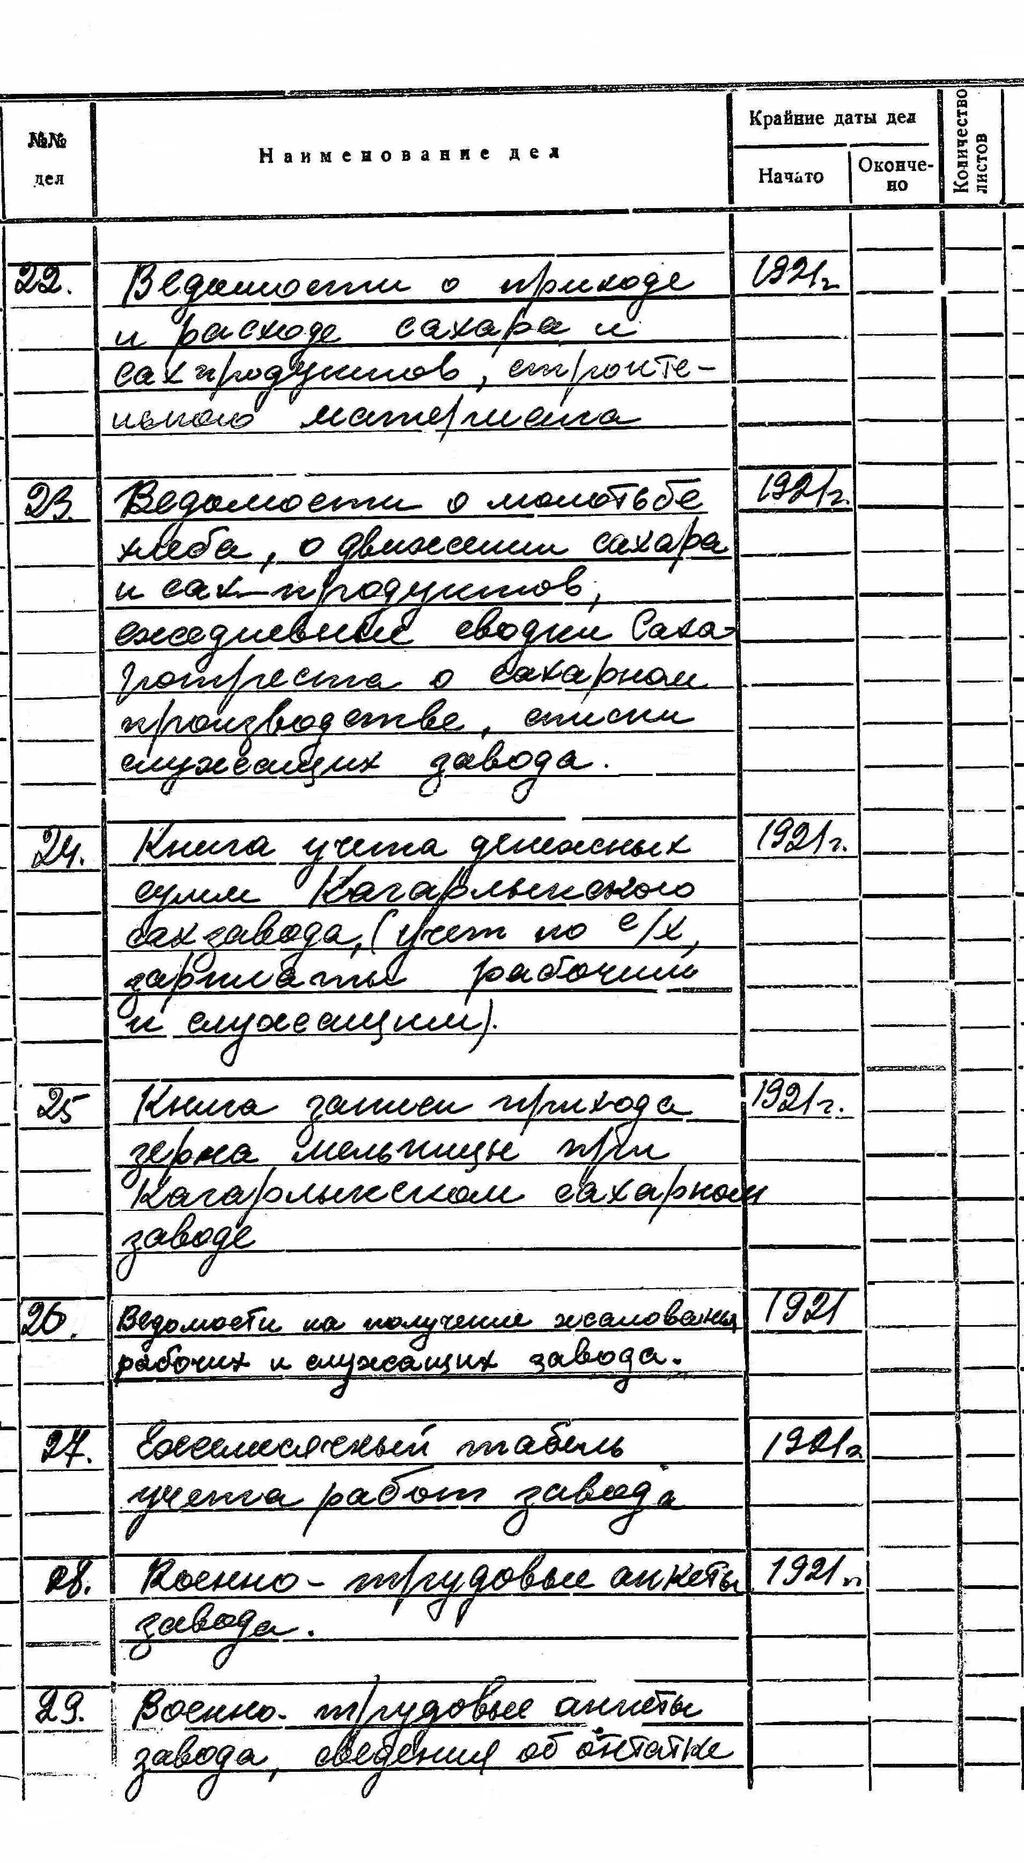 №№ дел
Наименование дел
Крайние даты дел
Начато
Окончено
Количество листов
22. Ведомости о приходе 1921г.
и расходе сахара и
сахпродуктов, строите-
льного материала
23. Ведомости о молотьбе 1921г.
хлеба, о движении сахара
и сах-продуктов,
ежедневные сводки Саха-
ротреста о сахарном
производстве, списки
служащих завода.
24. Книга учета денежных 1921г.
сумм Кагарлыкского
сахзавода, (учет по с/х,
зарплаты рабочим
и служащим).
25 Книга записи прихода 1921г.
зерна мельницы при
Кагарлыкском сахарном
заводе
26. Ведомости на получение жалованья 1921
рабочих и служащих завода.
27. Ежемесячный табель 1921г
учета работ завода
28. Военно-трудовые анкеты 1921г
завода.
29. Военно-трудовые анкеты
завода, сведения об